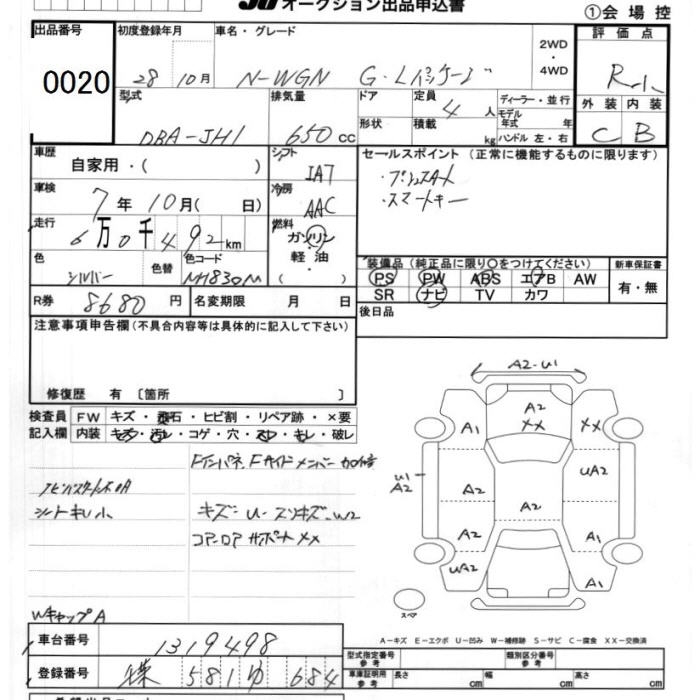 オークション出品申込書
①会場控
出品番号
0020
初度登録年月
28 10月
車名・グレード
N-WGN G・Lパッケージ
2WD
・
4WD
評価点
R小
外装 内装
C B
型式
DBA-JH1
排気量
650cc
ドア
形状
定員
4人
積載
kg
ディーラー・並行
モデル年式 年
ハンドル 左・右
車歴
自家用・( )
シフト
IAT
セールスポイント(正常に機能するものに限ります)
・プッシュスタート
・スマートキー
車検
7年10月( 日)
冷房
AAC
走行
6万0千492km
燃料
ガソリン
軽油
( )
色
シルバー
色替
色コード
NH830M
装備品(純正品に限り○をつけてください)
PS PW ABS エアB AW
SR ナビ TV カワ
新車保証書
有・無
R券
8680円
名変期限 月 日
後日品
注意事項申告欄(不具合内容等は具体的に記入して下さい)
修復歴 有〔箇所 〕
検査員記入欄
FW キズ・飛石・ヒビ割・リペア跡・×要
内装 キズ・汚レ・コゲ・穴・スレ・キレ・破レ
Fインパネ、Fサイドメンバー
シートキレ小
キズ・U・スリキズ・W2
コアロアサポートXX
WキャップA
A2・U1
A2
XX
XX
A1
UA2
U1
A2
A2
A2
A2
A1
UA2
A1
スペア
A-キズ E-エクボ U-凹み W-補修跡 S-サビ C-腐食 XX-交換済
車台番号
1319498
登録番号
581 ゆ 684
型式指定番号
参考
類別区分番号
参考
車庫証明用
参考
長さ cm
幅 cm
高さ cm